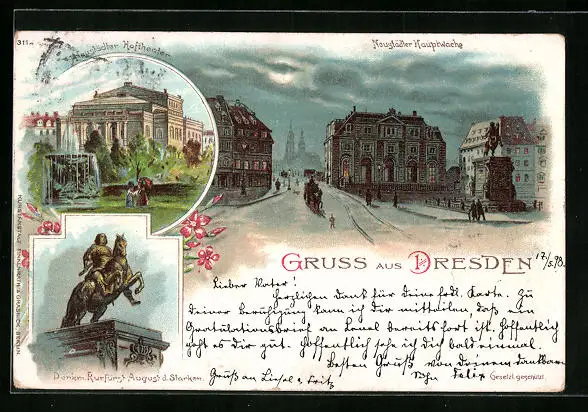 311a
Neustädter Hoftheater
Neustädter Hauptwache
KUNSTANSTALT FINKENRATH & GRASNICK, BERLIN
GRUSS AUS DRESDEN
17/5.98.
Lieber Vater!
Herzlichen Dank für deine frdl. Karte. Zu
deiner Beruhigung kann ich dir mitteilen, daß ein
Gratulationsbrief an bereits fort ist. Hoffentlich
geht es dir gut. Hoffentlich sehe ich dich bald einmal.
Besten Gruß von deinem dankbaren
Sohn Felix
Denkm. Kurfürst August d. Starken.
Gruß an Liesel u. Fritz
Gesetzl. geschützt